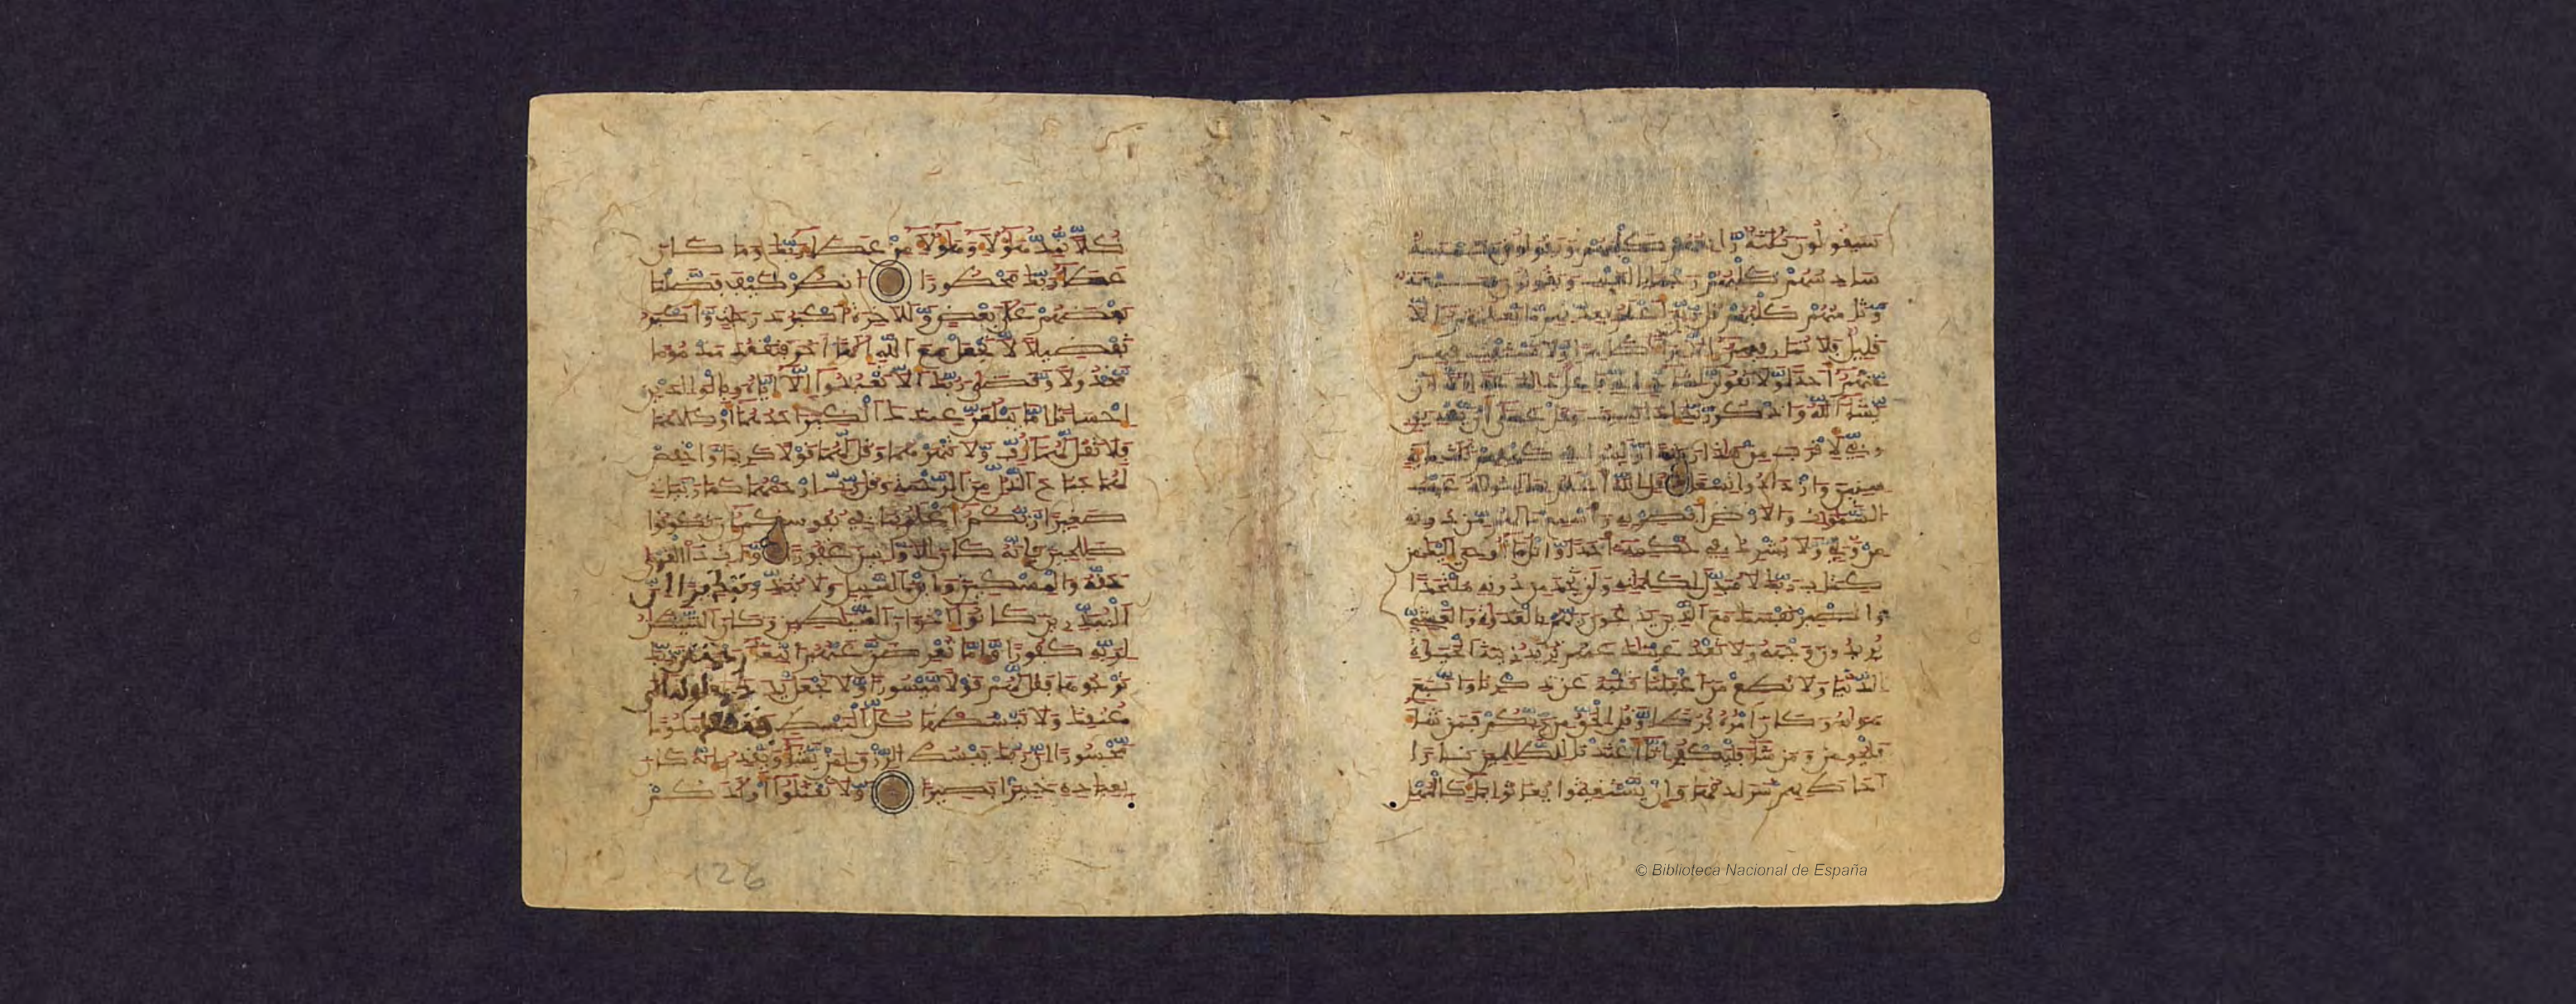 سيقولون ثلثة رابعهم كلبهم ويقولون خمسة
سادسهم كلبهم رجما بالغيب ويقولون سبعة
وثامنهم كلبهم قل ربي أعلم بعدتهم ما يعلمهم إلا
قليل فلا تمار فيهم إلا مراء ظهرا ولا تستفت فيهم
منهم أحدا ولا تقولن لشيء إني فاعل ذلك غدا إلا أن
يشاء الله واذكر ربك إذا نسيت وقل عسى أن يهدين
ربي لأقرب من هذا رشدا ولبثوا في كهفهم ثلث مائة
سنين وازدادوا تسعا قل الله أعلم بما لبثوا له غيب
السموت والأرض أبصر به وأسمع ما لهم من دونه
من ولي ولا يشرك في حكمه أحدا واتل ما أوحي إليك من
كتاب ربك لا مبدل لكلماته ولن تجد من دونه ملتحدا
واصبر نفسك مع الذين يدعون ربهم بالغدوة والعشي
يريدون وجهه ولا تعد عينك عنهم تريد زينة الحيوة
الدنيا ولا تطع من أغفلنا قلبه عن ذكرنا واتبع
هويه وكان أمره فرطا وقل الحق من ربكم فمن شاء
فليومن ومن شاء فليكفر إنا أعتدنا للظلمين نارا
أحاط بهم سرادقها وإن يستغيثوا يغاثوا بماء كالمهل
كلا نمد هؤلاء وهؤلاء من عطاء ربك وما كان
عطاء ربك محظورا انظر كيف فضلنا
بعضهم على بعض وللآخرة أكبر درجت وأكبر
تفضيلا لا تجعل مع الله إلها آخر فتقعد مذموما
مخذولا وقضى ربك ألا تعبدوا إلا إياه وبالولدين
إحسنا إما يبلغن عندك الكبر أحدهما أو كلاهما
فلا تقل لهما أف ولا تنهرهما وقل لهما قولا كريما واخفض
لهما جناح الذل من الرحمة وقل رب ارحمهما كما ربياني
صغيرا ربكم أعلم بما في نفوسكم إن تكونوا
صلحين فإنه كان للأوبين غفورا وآت ذا القربى
حقه والمسكين وابن السبيل ولا تبذر تبذيرا إن
المبذرين كانوا إخوان الشيطين وكان الشيطن
لربه كفورا وإما تعرضن عنهم ابتغاء رحمة من ربك
ترجوها فقل لهم قولا ميسورا ولا تجعل يدك مغلولة إلى
عنقك ولا تبسطها كل البسط فتقعد ملوما
محسورا إن ربك يبسط الرزق لمن يشاء ويقدر إنه كان
بعباده خبيرا بصيرا ولا تقتلوا أولدكم
126
© Biblioteca Nacional de España